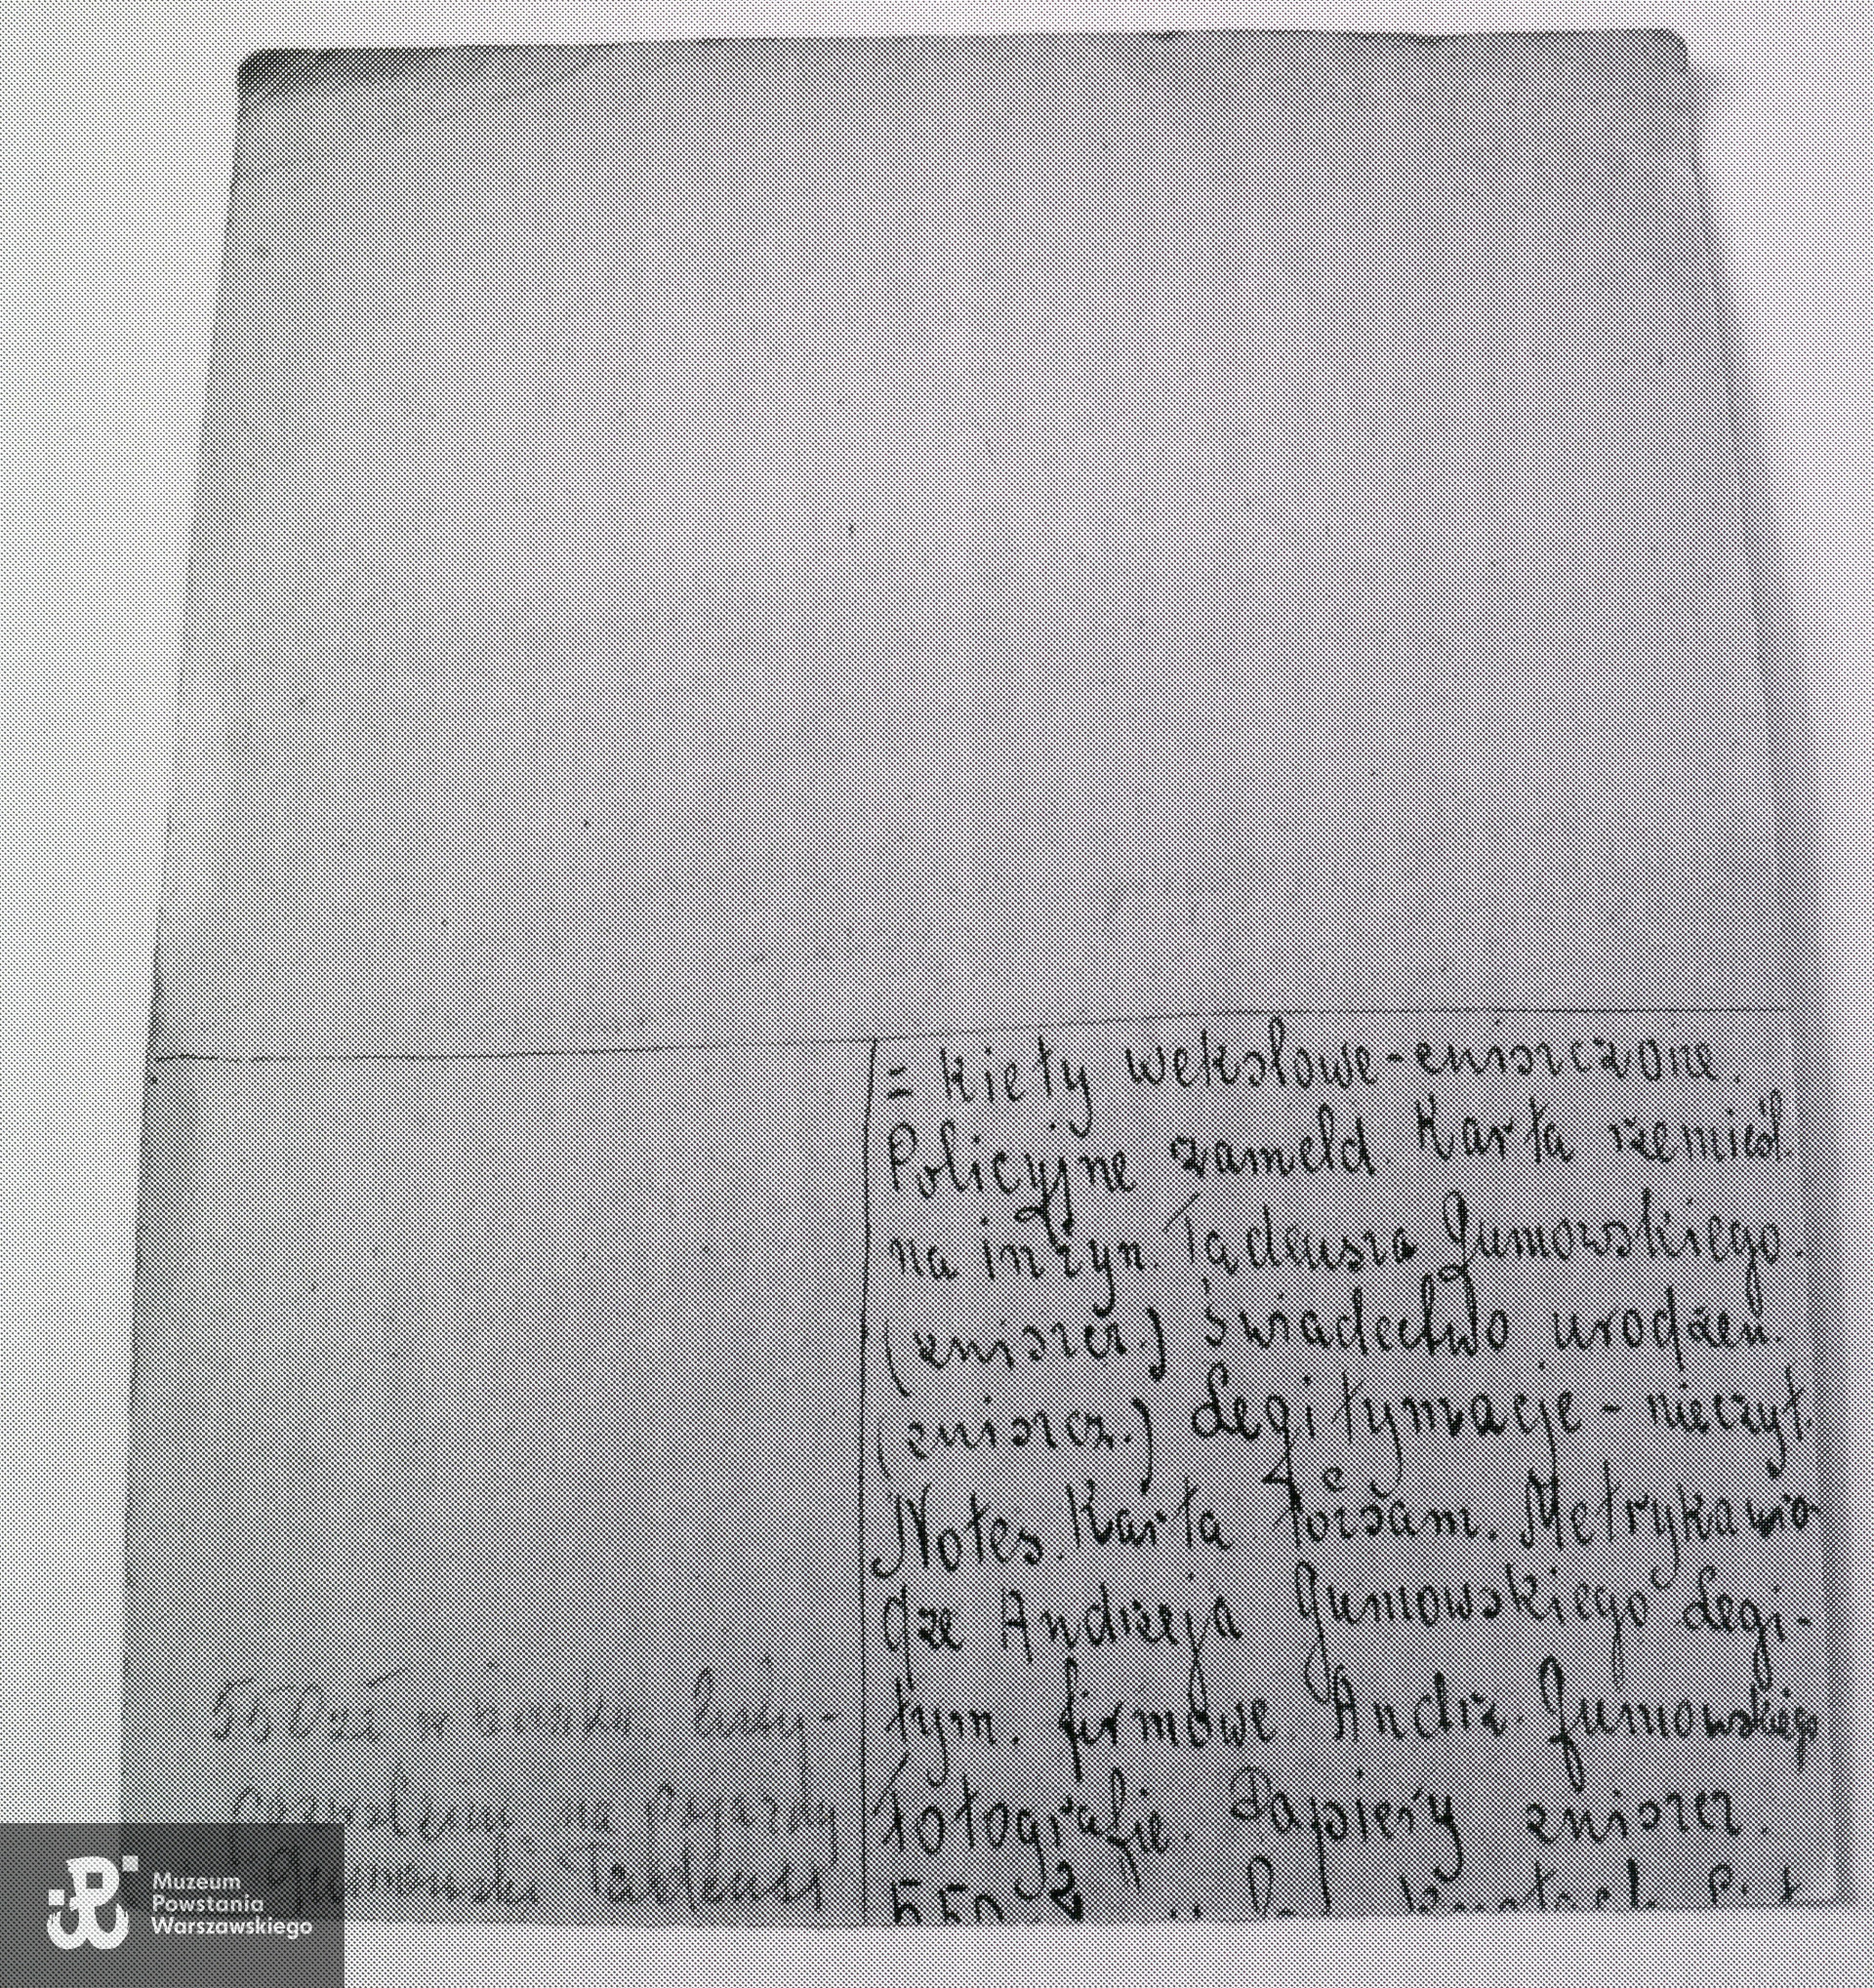 = kiety wekslowe - zniszczone.
Policyjne zameld. Karta rzemieśl.
na inżyn. Tadeusza Gumowskiego.
(zniszcz.) Świadectwo urodzen.
(zniszcz.) Legitymacje - nieczyt.
Notes. Karta tożsam. Metryka uro-
dze Andrzeja Gumowskiego Legi-
tym. firmowe. Andrz. Gumowskiego
Fotografie. Papiery zniszcz.
550 zł
550 zł w banku
na pojazdy
Gumowski Tadeusz
Muzeum
Powstania
Warszawskiego